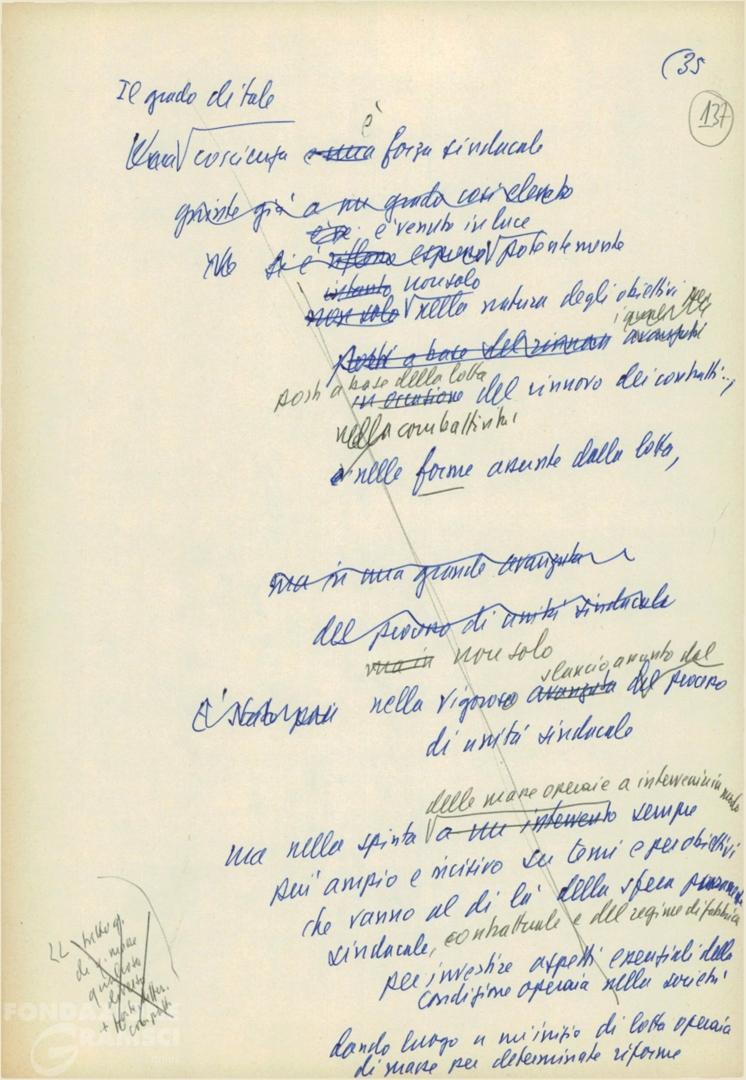 (35
137
Il grado di tale
Una coscienza è una forza sindacale
giunte già a un grado così elevato
è venuto in luce
No si è riflesso espresso potentemente
intanto non solo
non solo nella natura degli obiettivi
posti a base del rinnovo avanzati
posti a base della lotta
in occasione del rinnovo dei contratti,
nella combattività
e nelle forme assunte dalla lotta,
ma in una grande avanzata
del processo di unità sindacale
ma in non solo
slancio assunto dal
nella vigorosa avanzata del processo
di unità sindacale
delle masse operaie a intervenire in modo
ma nella spinta a un intervento sempre
più ampio e incisivo su temi e per obiettivi
che vanno al di là della sfera puramente
sindacale, contrattuale e del regime di fabbrica
per investire aspetti essenziali della
condizione operaia nella società
dando luogo a un inizio di lotta operaia
di masse per determinate riforme
FONDAZIONE
GRAMSCI